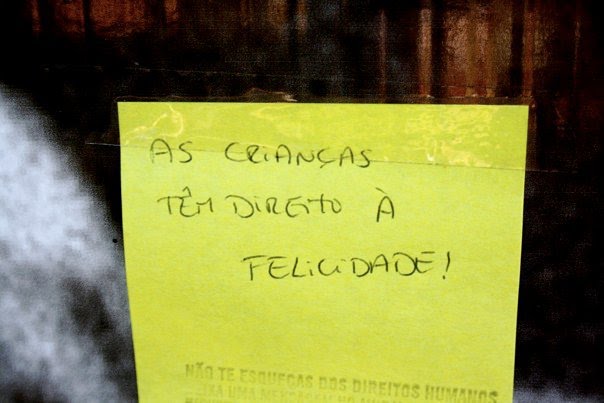 AS CRIANÇAS
TÊM DIREITO À
FELICIDADE!
NÃO TE ESQUEÇAS DOS DIREITOS HUMANOS
UMA MENSAGEM NO